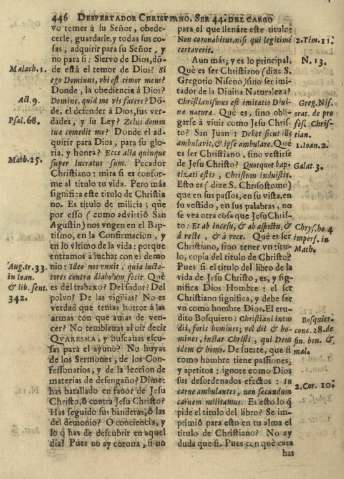 446 DESPERTADOR CHRISTIANO. SER 44. DEL CARGO
vo temer à su Señor, obede-
cerle, guardarle, y todas sus co-
sas, adquirir para su Señor, y
no para si: Siervo de Dios, dò-
Malach. 1.
de està el temor de Dios? Si
ego Dominus, vbi est timor meus?
Donde, la obediencia à Dios?
Act. 9.
Domine, quid me vis facere? Dõ-
de, el defender à Dios, sus ver-
Psal. 68.
dades, y su Ley? Zelus domus
tuæ comedit me? Donde el ad-
quirir para Dios, para su glo-
ria, y honra? Ecce alia quinque
Math. 25.
super lucratus sum. Pecador
Christiano: mira si es confor-
me al titulo tu vida. Pero mas
significa este titulo de Christia-
no. Es titulo de milicia; que
por esso (como advirtiò San
Agustin) nos vngen en el Bap-
tismo, en la Confirmacion, y
en lo vltimo de la vida: porque
entramos à luchar con el demo-
Aug. tr. 33.
nio: Ideo nos vnxit, quia lucta-
in Ioan.
tores contra diabolum fecit. Què
& lib. sent.
es del trabajo? Del sudor? Del
342.
polvo? De las vigilias? No es
verdad que tomas horror à las
armas con que aviàs de ven-
cer? No tiemblas al oìr decir
QUARESMA, y buscas escu-
sas para el ayuno? No huyas
de los Sermones, de los Con-
fessonarios, y de la leccion de
materias de desengaño? Dime:
has batallado en favor de Jesu
Christo, ò contra Jesu Christo?
Has seguido sus banderas, ò las
del demonio? O conciencia, y
lo q̃ has de descubrir en aquel
dia! Pues no ay corona, si no
para el que llenàre este titulo:
Non coronabitur, nisi qui legitimè
2. Tim. 2.
certaverit.
N. 13.
Aun mas; y es lo principal.
Què es ser Christiano (dize S.
Gregorio Niseno) sino ser imi-
tador de la Divina Naturaleza?
Christianismus est imitatio Divi-
Greg. Nis.
næ naturæ. Què es, sino obli-
orat. de pro
garse à vivir como Jesu Chris-
fess. Christ-
to? San Juan: Debet sicut ille
tian.
ambulavit, & ipse ambulare. Què
1. Ioan. 2.
es ser Christiano, sino vestirse
de Jesu Christo? Quicumque bap-
Galat. 3.
tizati estis, Christum induistis.
Esto es (dize S. Chrysostomo)
que en sus passos, en su vista, en
su vestido, en sus palabras, no
se vea otra cosa que Jesu Chris-
to: Et ab incessu, & ab aspectu, &
Chrys. ho 4
à veste, & à voce. Què es ser
imperf. in
Christiano, sino tener vn titu-
Math.
lo, copia del titulo de Christo?
Pues si el titulo del libro de la
vida de Jesu Christo, es, y sig-
nifica Dios Hombre: el ser
Christiano significa, y debe ser
vn como hombre Dios. El eru-
dito Bosquiero: Christiani inten-
Bosquier.
dij, foris homines, vel dij & ho-
conc. 28. de
mines, instar Christi, qui Deus
fin. bon. &
idem & homo. De suerte, que si
mal.
como hombre tiene passiones,
y apetitos: ignore como Dios
sus desordenados efectos: In
2. Cor. 10.
carne ambulantes, non secundum
carnem militamus. Es esto lo q̃
pide el titulo del libro? Se im-
primiò para esto en tu alma el
titulo de Christiano? No ay
duda que si. Pues con què cara
has